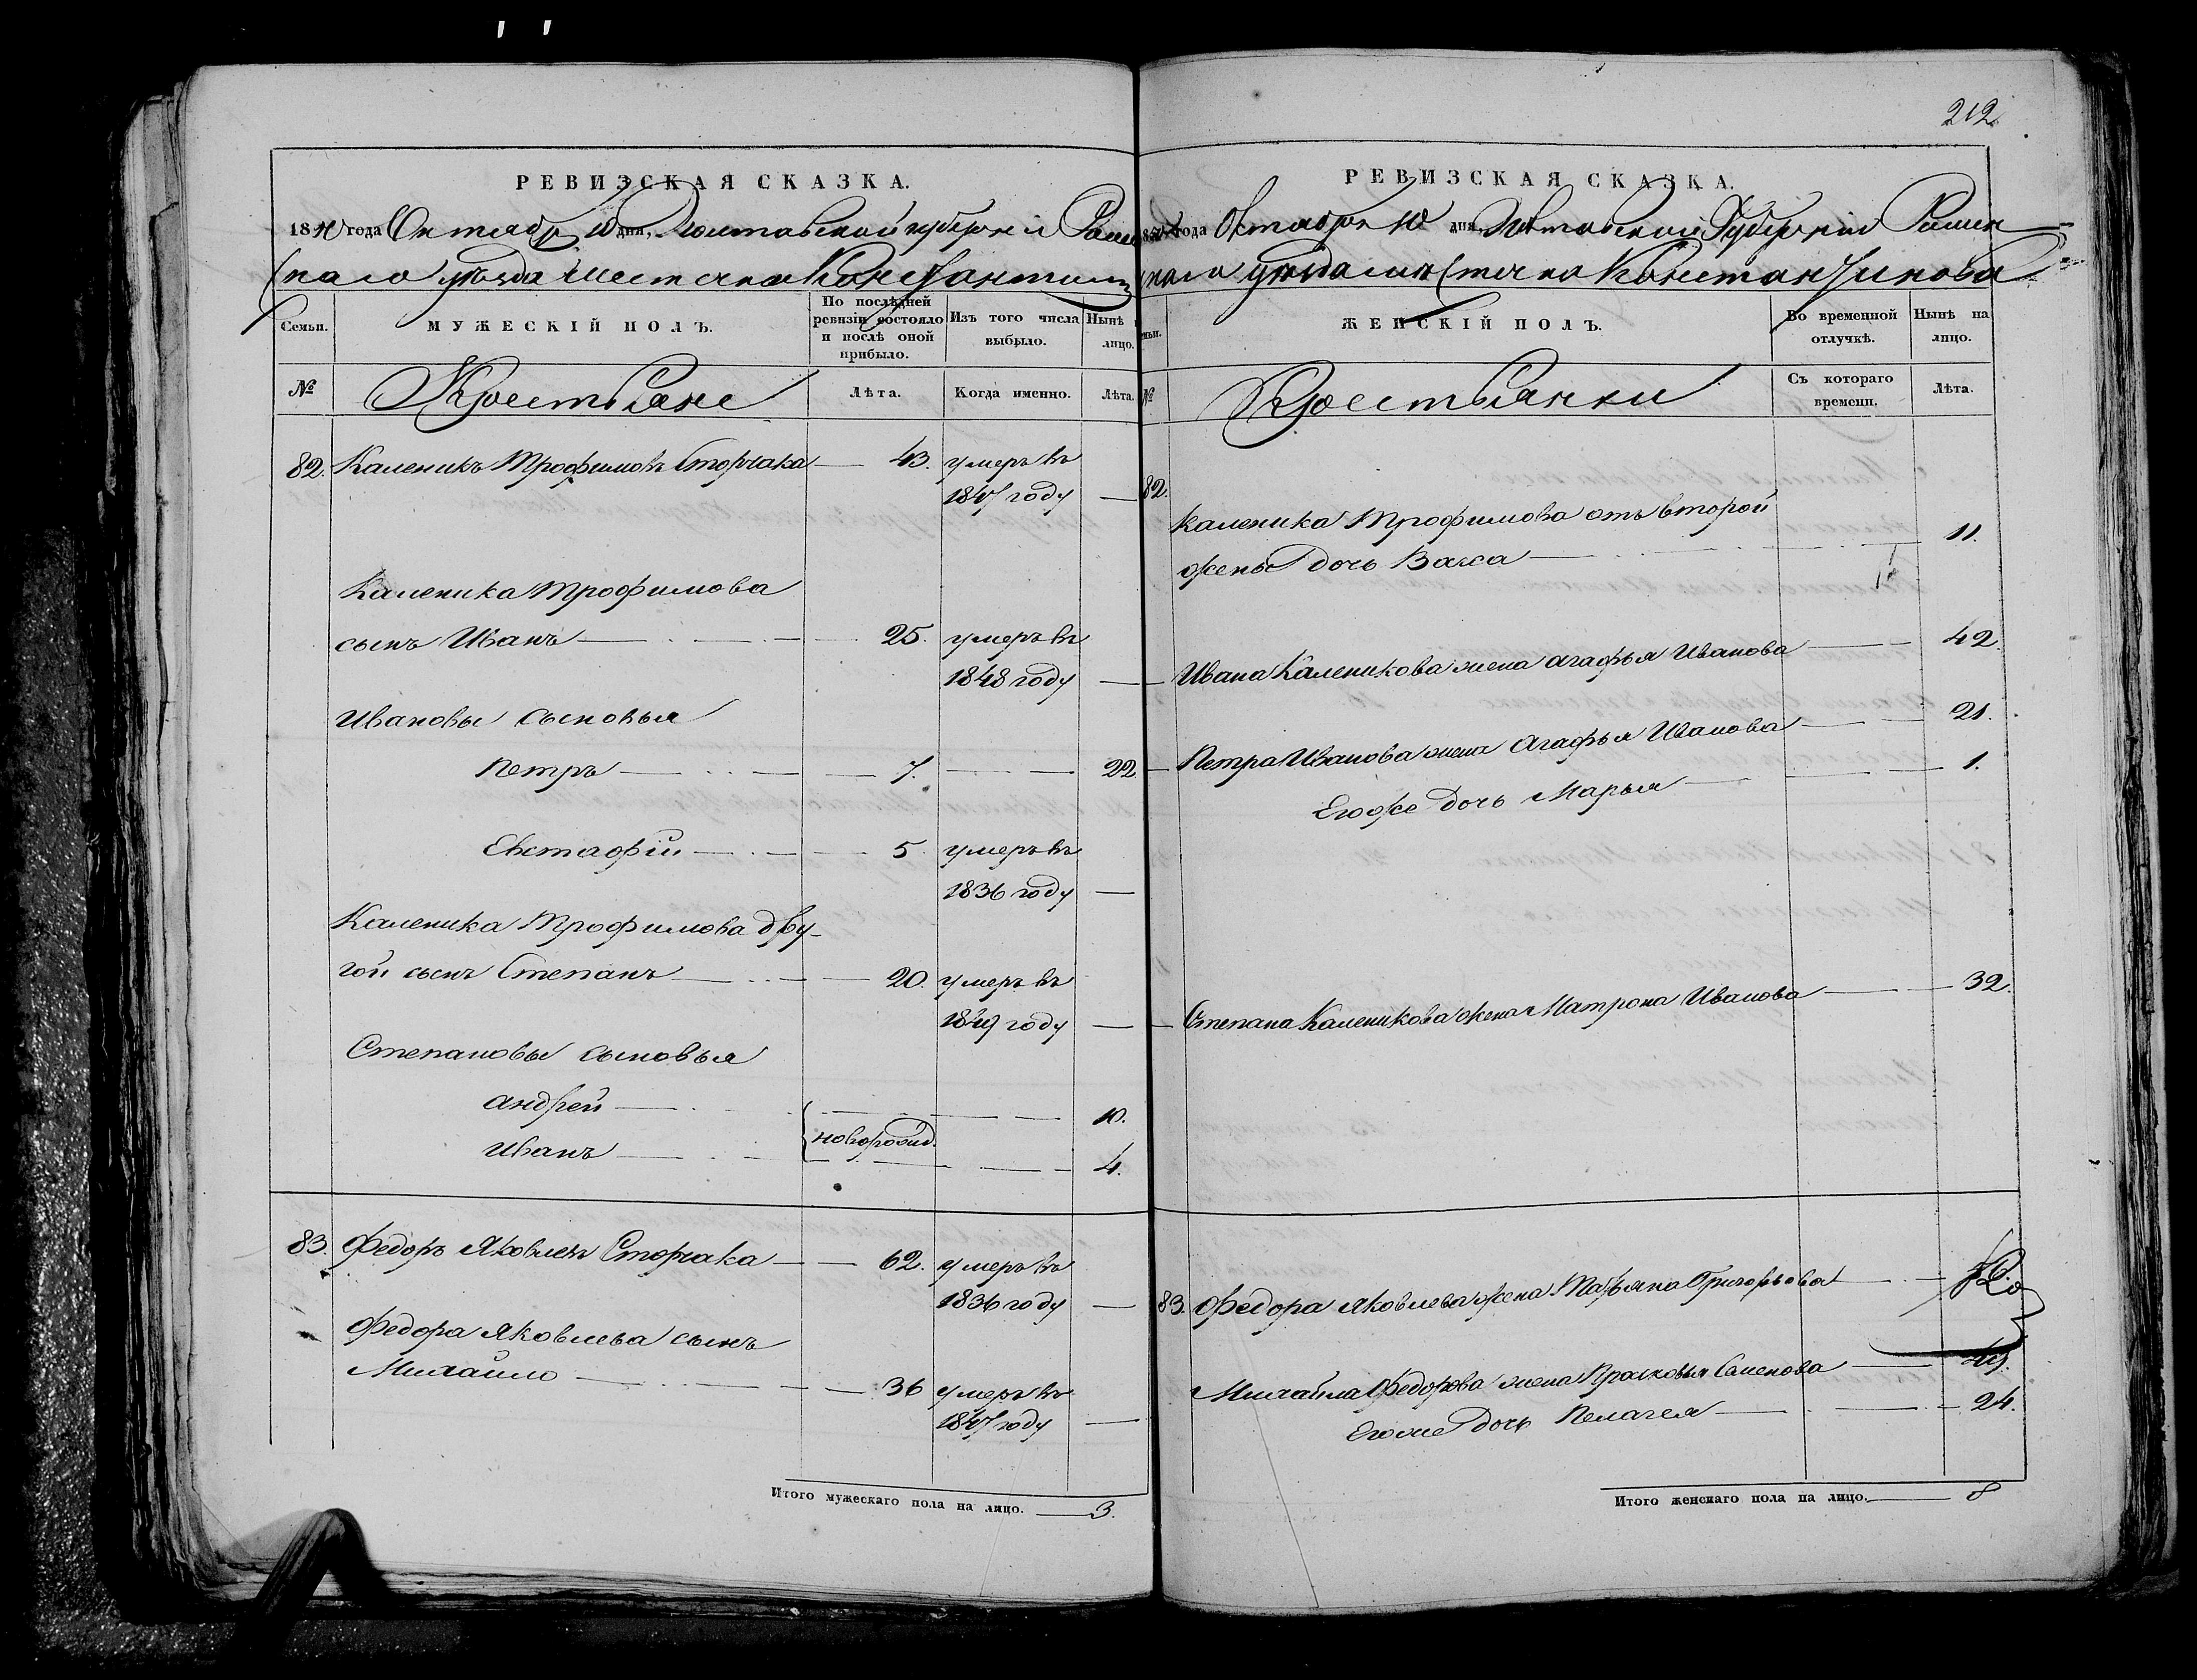 212
РЕВИЗСКАЯ СКАЗКА.
1850 года Октября 10 дня, Полтавской губернии Ромен
скаго уѣзда местечка Константин
Семьи.
МУЖЕСКІЙ ПОЛЪ.
По послѣдней ревизіи состояло и послѣ оной прибыло.
Изъ того числа выбыло.
Нынѣ лицо.
№
Крестьяне
Лѣта.
Когда именно.
Лѣта.
82. Каленикъ Трофимовъ Сторчака 43. умеръ въ
1847 году
Каленика Трофимова
сынъ Иванъ 25. умеръ въ
1848 году
Ивановы сыновья
Петръ 7. 22
Евстафій 5 умеръ въ
1836 году
Каленика Трофимова дру-
гой сынъ Степанъ 20. умеръ въ
1849 году
Степановы сыновья
Андрей 10.
новорожд.
Иванъ 4.
83. Федоръ Яковлевъ Сторчака 62. умеръ въ
1836 году
Федора Яковлева сынъ
Михайло 36 умеръ въ
1847 году
Итого мужескаго пола на лицо. 3.
РЕВИЗСКАЯ СКАЗКА.
1850 года Октября 10 дня, Полтавской Губерніи Ромен
скаго уѣзда мѣстечка Константинова
ЖЕНСКІЙ ПОЛЪ.
Во временной отлучкѣ.
Нынѣ на лицо.
№
Крестьянки
Съ котораго времени.
Лѣта.
82.
Каленика Трофимова отъ второй
жены дочь Васса 11.
Ивана Каленикова жена Агафья Иванова 42.
Петра Иванова жена Агафья Иванова 21.
Егоже дочь Марья 1.
Степана Каленикова жена Матрона Иванова 32.
83. Федора Яковлева жена Татьяна Григорьова
Михайла Федорова жена Прасковья Семенова
Егоже дочь Пелагея 24.
Итого женскаго пола на лицо. 8